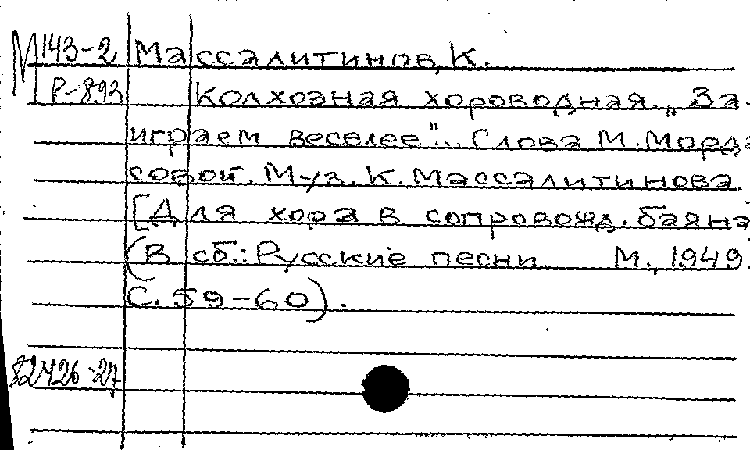 М143-2 Массалитинов, К.
Р-893 Колхозная хороводная. „За-
играем веселее“.. Слова М.Морда
совой. Муз. К. Массалитинова.
[Для хора в сопровожд. баяна
(В сб.: Русские песни М., 1949.
С. 59-60).
82426-27